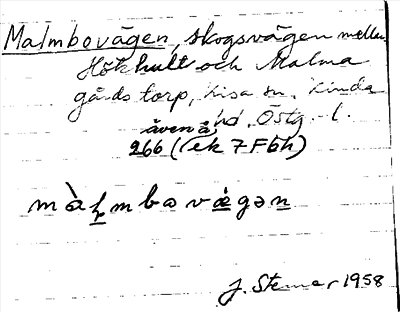 Malmbovägen, skogsvägen mellan
Hökhult och Malma
gårds torp, Kisa sn. Kinda
hd. Östg. l.
även å
266 (ek 7 F6h)
màḷmbovägən
J. Sterner 1958